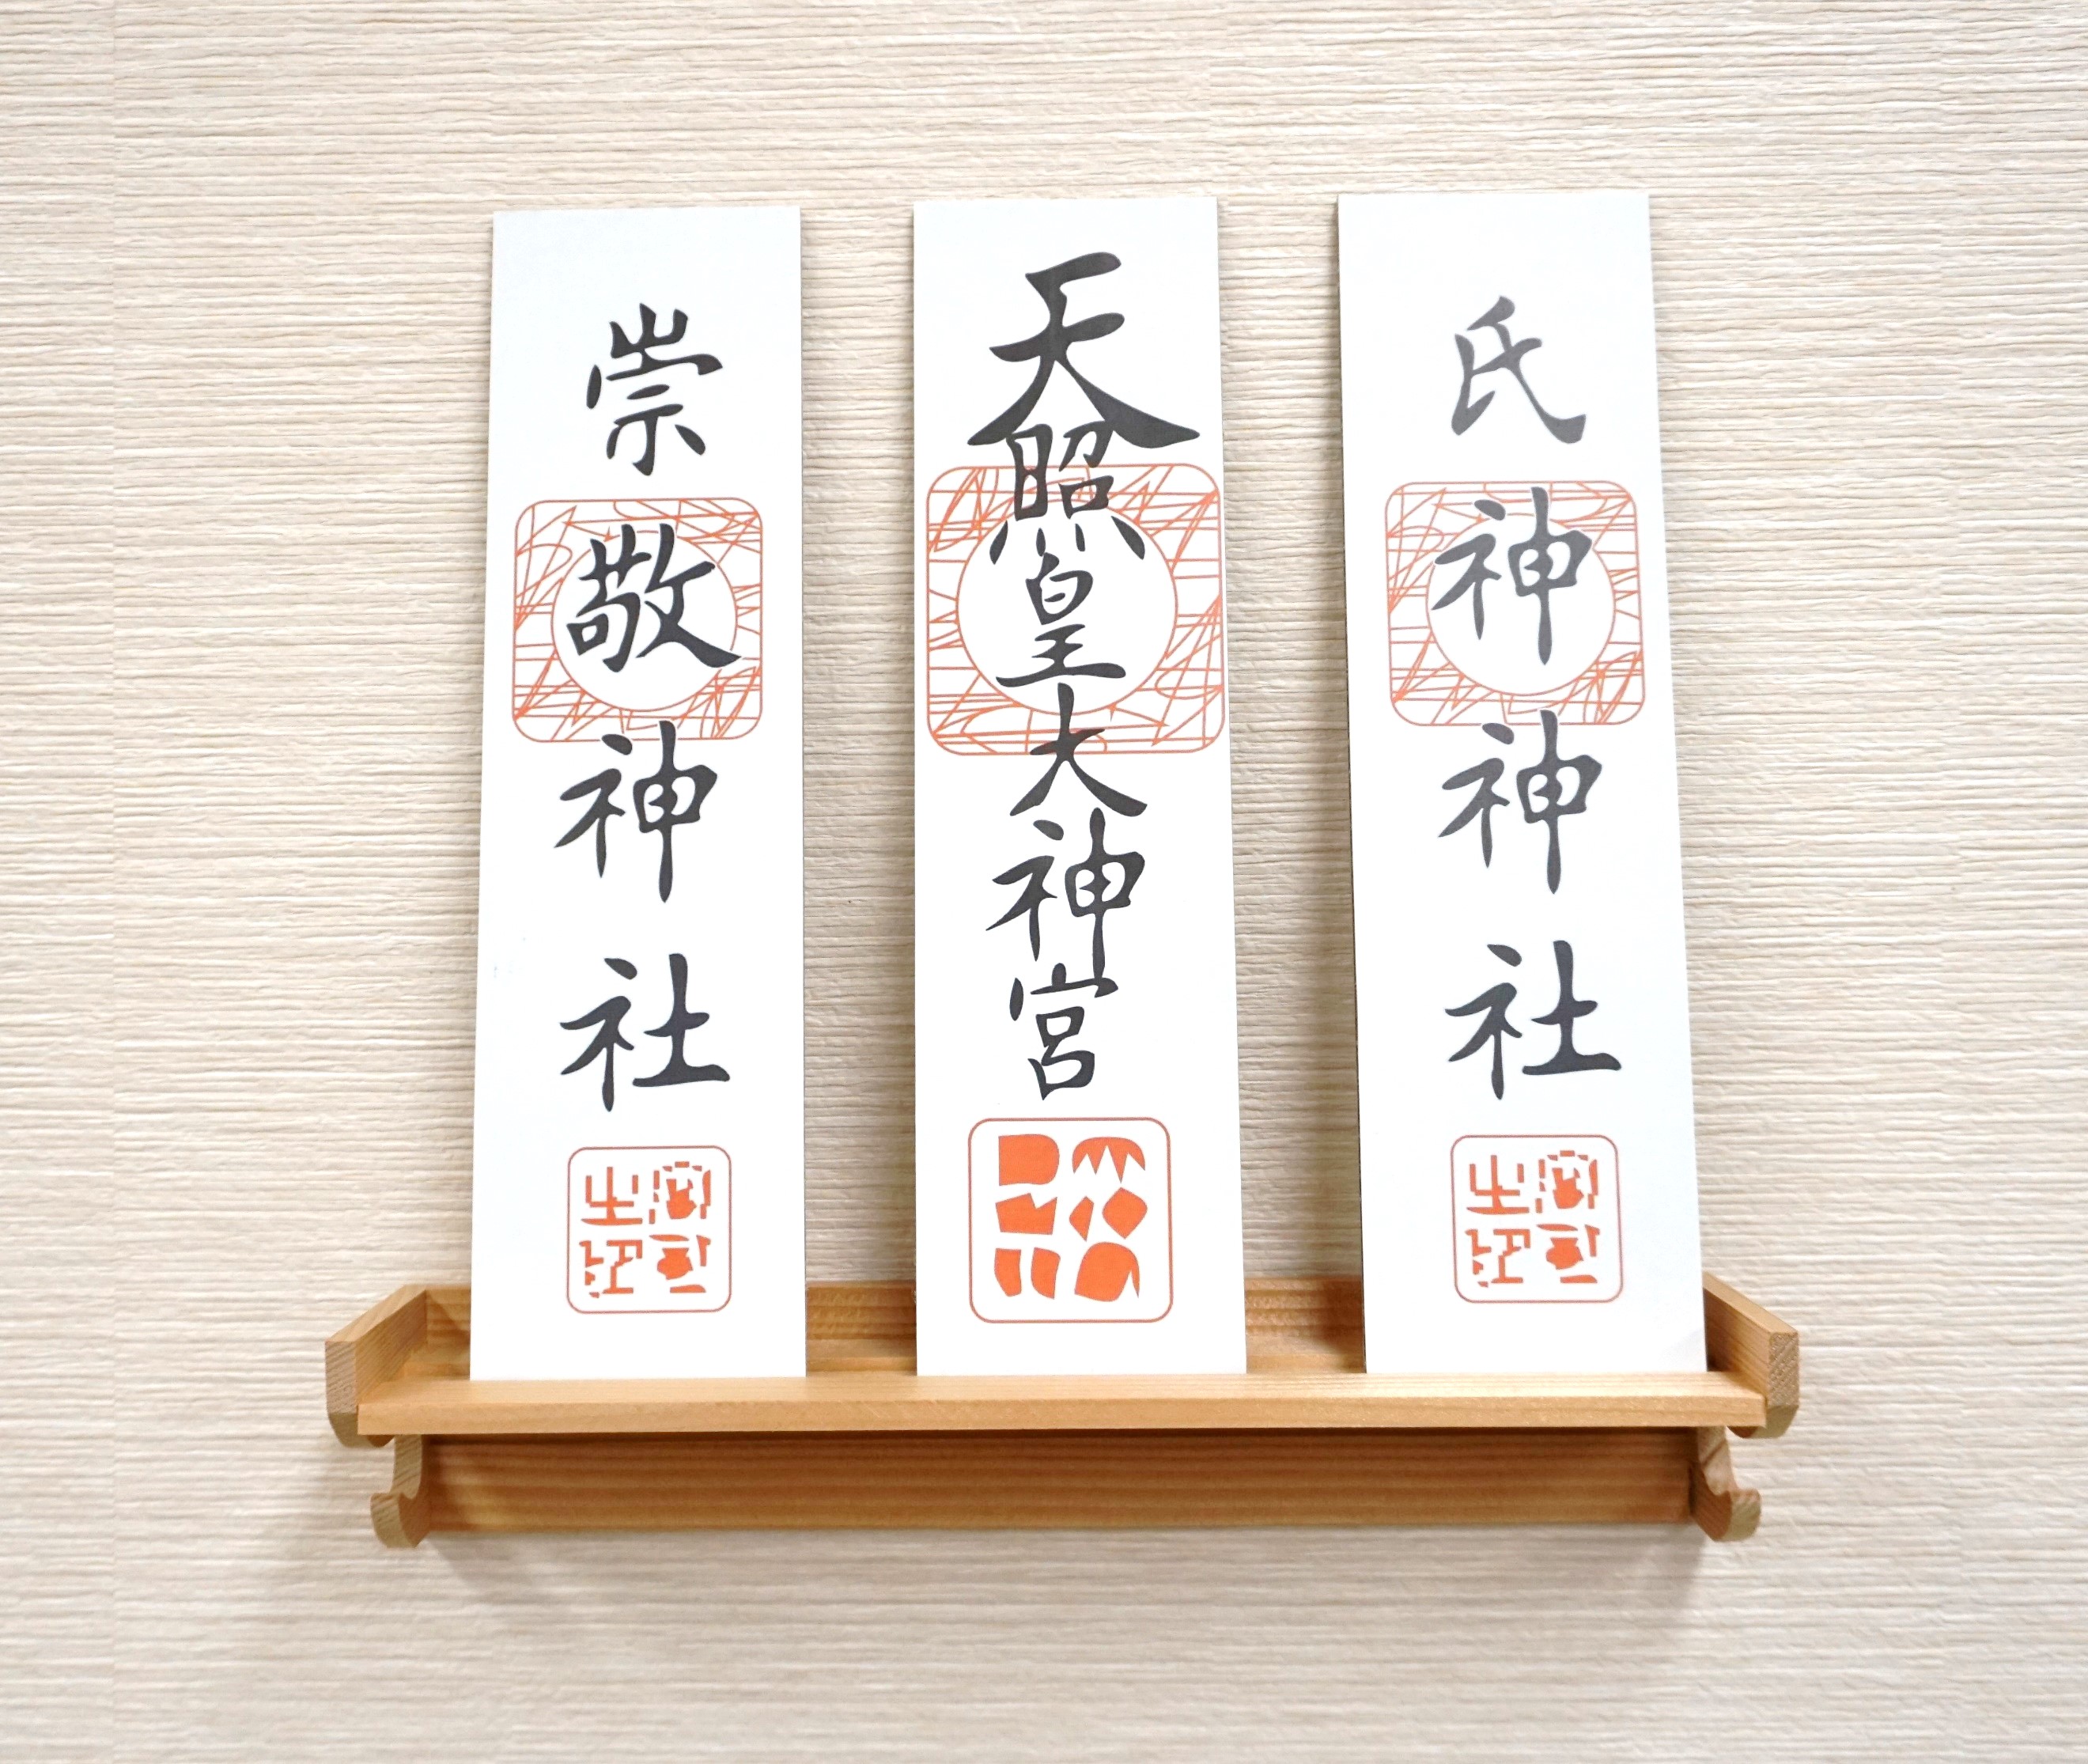 氏神神社
天照皇大神宮
崇敬神社